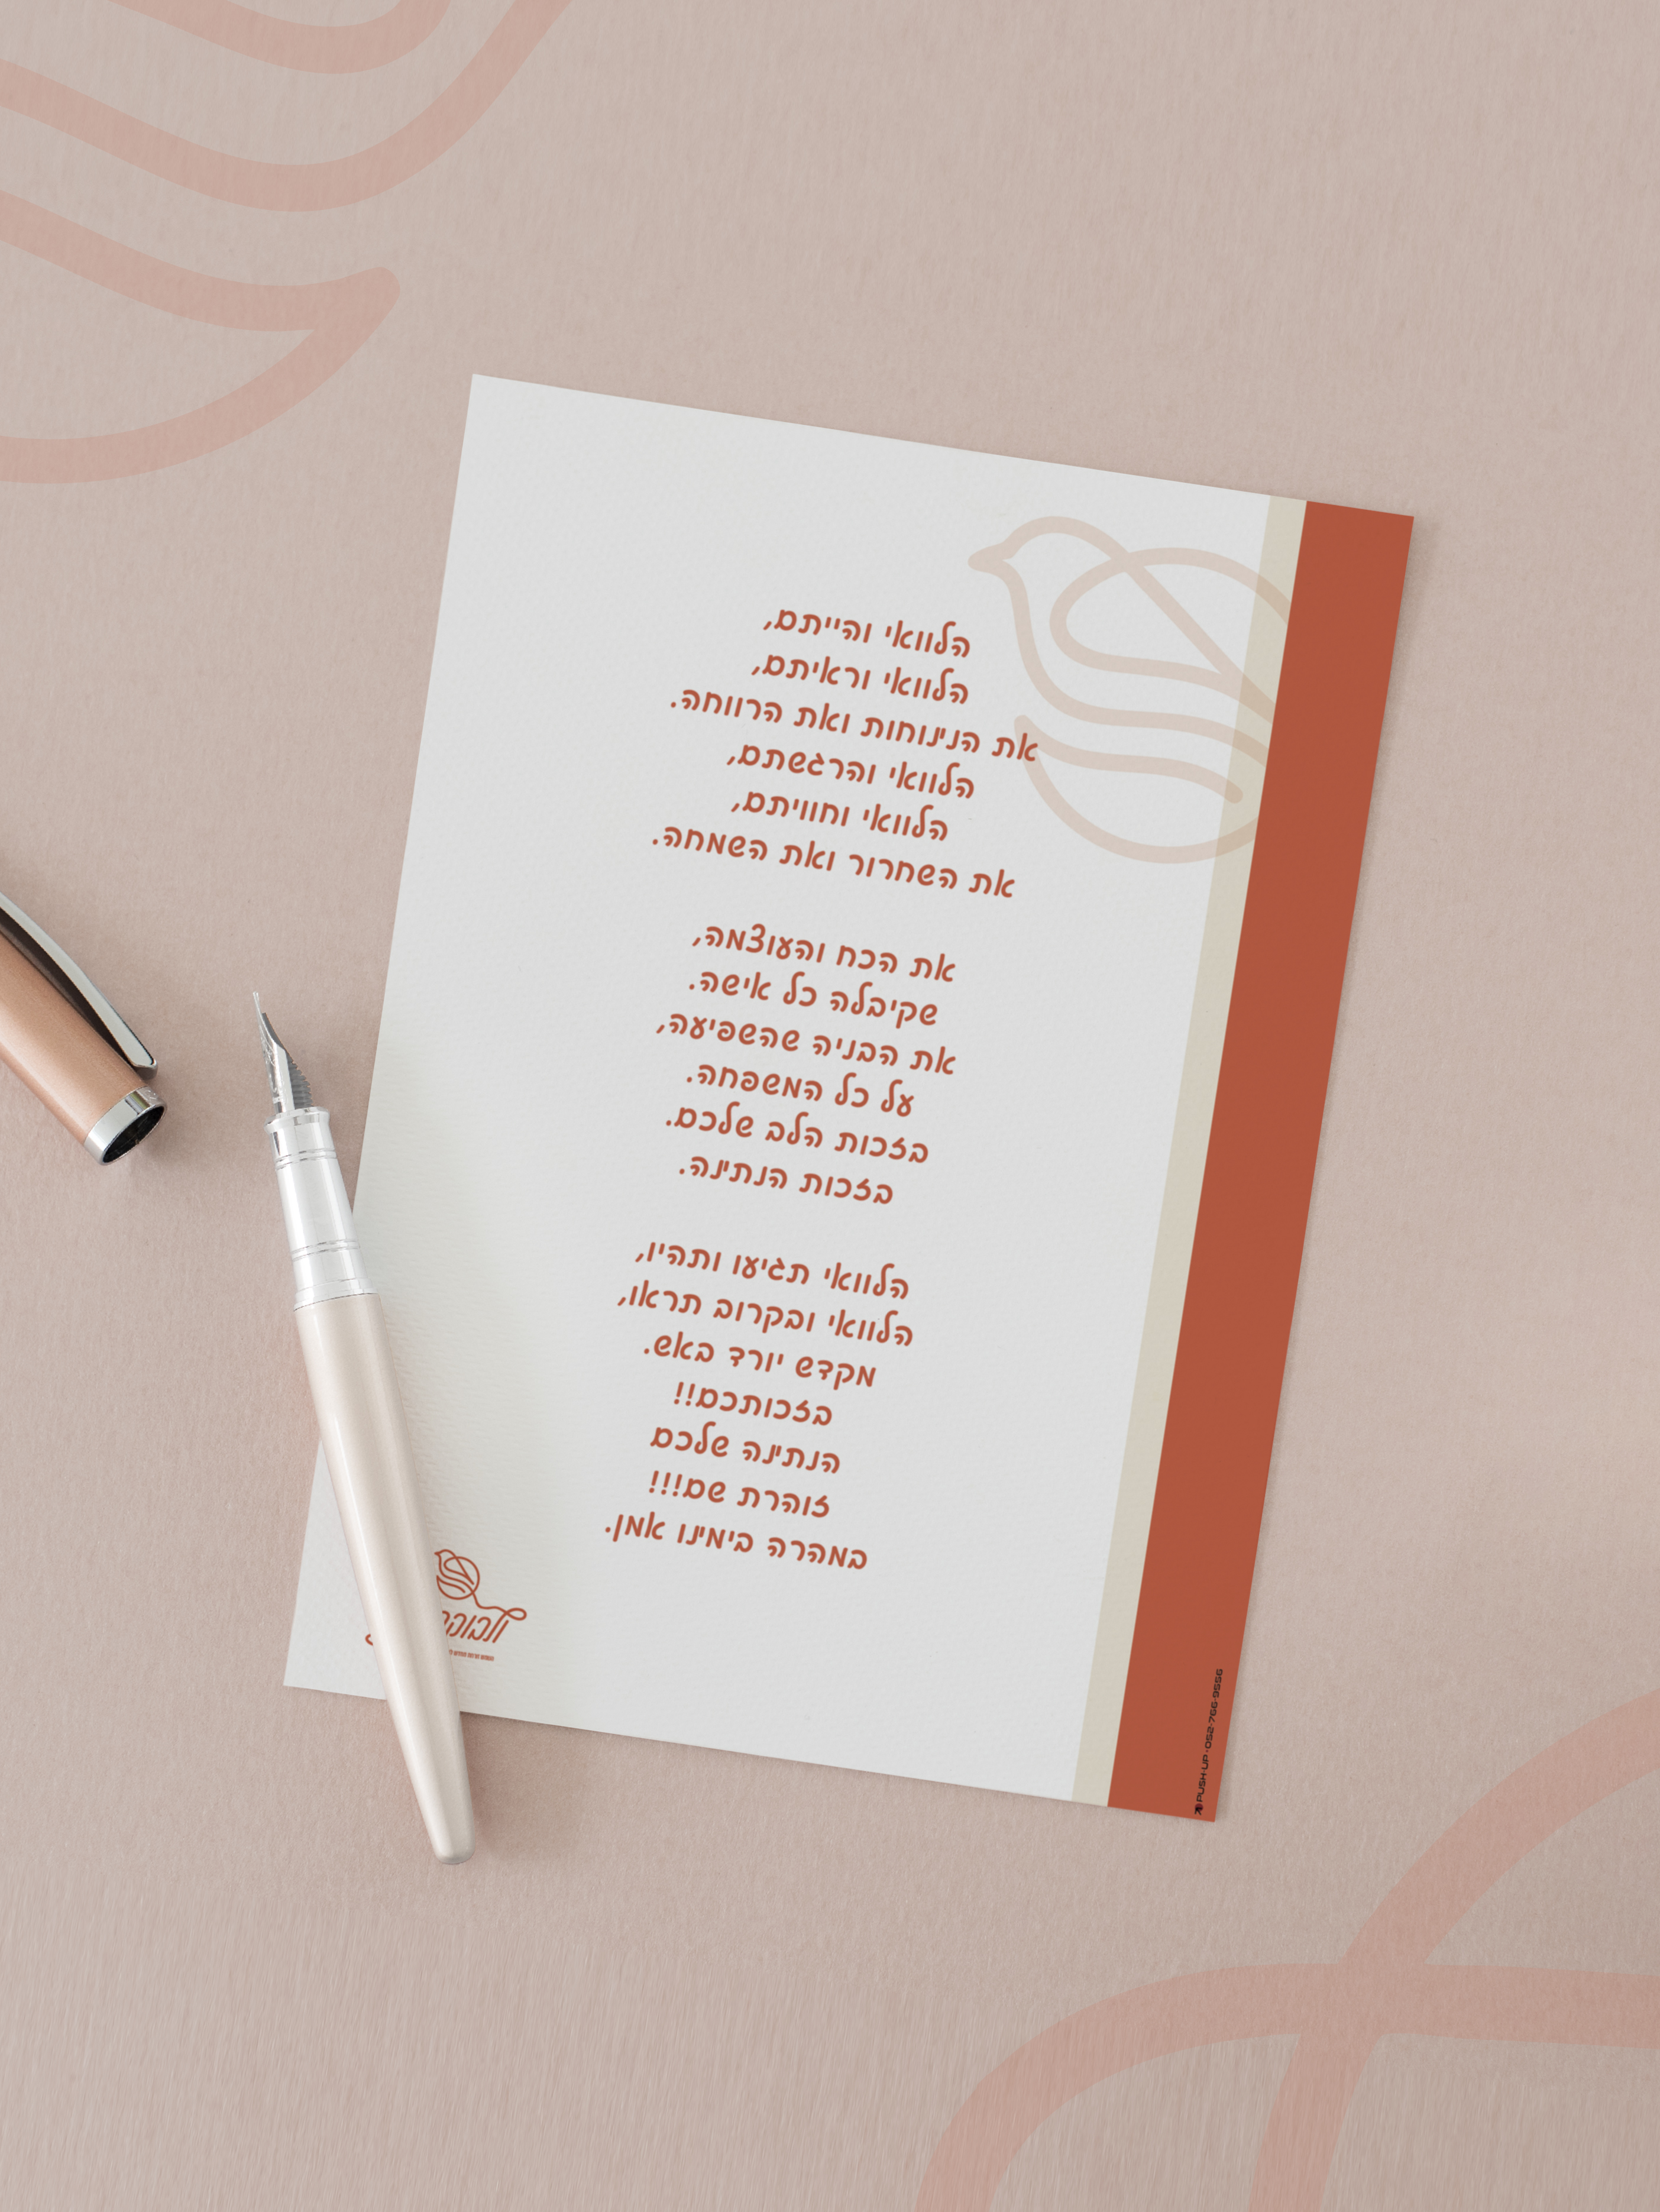 הלוואי והייתם,
הלוואי וראיתם,
את הנינוחות ואת הרווחה.
הלוואי והרגשתם,
הלוואי וחוויתם,
את השחרור ואת השמחה.
את הכח והעוצמה,
שקיבלה כל אישה.
את הבניה שהשפיעה,
על כל המשפחה.
בזכות הלב שלכם.
בזכות הנתינה.
הלוואי תגיעו ותהיו,
הלוואי ובקרוב תראו,
מקדש יורד באש.
בזכותכם!!
הנתינה שלכם
זוהרת שם!!!
במהרה בימינו אמן.
PUSH-UP·052-766-9556